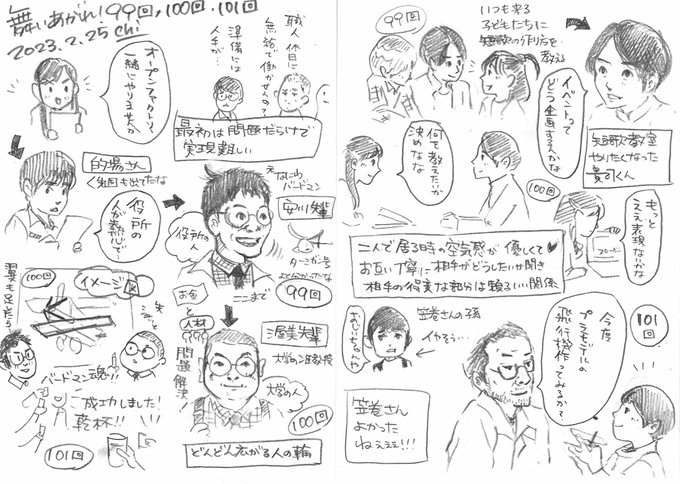 舞いあがれ!99回,100回.101回
2023.2.25 chi
オープンファクトリー
一緒にやりませんか
職人休日に
無給で働かせるの?
準備には
人手が…
最初は問題だらけで
実現難しい
的場さん
く先回も出てたな
役所の
人が熱心で
えなにわ
バードマン
安川先輩
役所の
ターミガン号
なつかしかったな
ここまで
99回
100回
イメージ図
翼も足そう!
バードマン魂!!
ご成功しました!
乾杯!!
101回
お金
と
人材
問題解決!
渥美先輩
大学の准教授
大学の人
100回
どんどん広がる人の輪
99回
いつも来る
子どもたちに
短歌の作り方を
教える
イベントって
どう企画するんかな
短歌教室
やりたくなった
貴司くん
何て教えたいか
決めなな
100回
もっと
ええ表現ないかな
二人で居る時の空気感が優しくて♥
お互い丁寧に相手がどうしたいか聞き
相手の得意な部分は頼るいい関係
笠巻さんの孫
イヤそう…
おじいちゃんや
笠巻さん
よかった
ねえええ!!!
101回
今度
プラモデルの
飛行機作ってみるか?